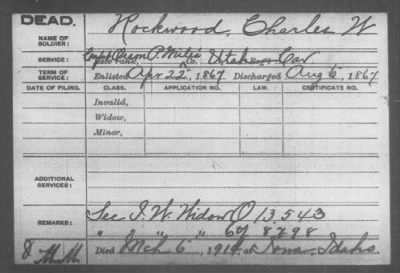 DEAD.
NAME OF SOLDIER: Rockwood, Charles W
SERVICE: Capt Orson P. Miles Co. Utah Cav
Late rank,
TERM OF SERVICE: Enlisted Apr 22", 1867 Discharged Aug 6, 1867
DATE OF FILING. CLASS. APPLICATION NO. LAW. CERTIFICATE NO.
Invalid,
Widow,
Minor,
ADDITIONAL SERVICES:
REMARKS: See I. W. Widow O 13,543
" " " " 8298
Died Mch 6", 1914, at Iona, Idaho.